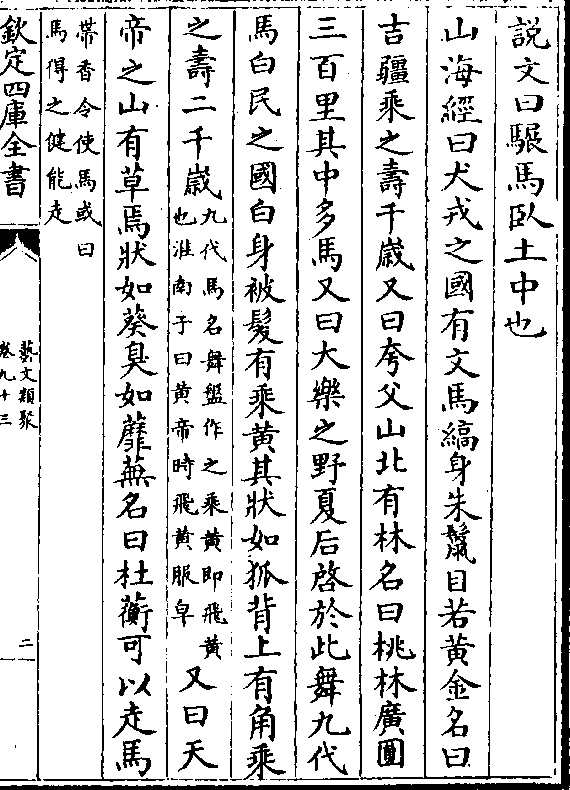 說文曰驏馬臥土中也
山海經曰犬戎之國有文馬縞身朱鬛目若黄金名曰
吉疆乘之壽千嵗又曰夸父山北有林名曰桃林廣圓
三百里其中多馬又曰大樂之野夏后啓於此舞九代
馬白民之國白身被髮有乘黄其狀如狐背上有角乘
之壽二千嵗九代馬名舞盤作之乘黄即飛黄
也淮南子曰黄帝時飛黄服皁又曰天
帝之山有草焉狀如葵臭如蘼蕪名曰杜蘅可以走馬
帶香令使馬或曰
馬得之健能走
欽定四庫全書
藝文類聚
卷九十三
二